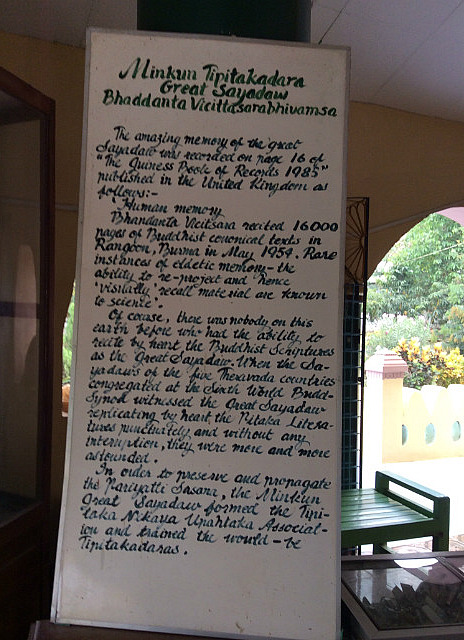 Minkun Tipitakadara
Great Sayadaw
Bhaddanta Vicittasarabhivamsa
The amazing memory of the great
Sayadaw was recorded on page 16 of
"The Guiness Book of Records 1985"
published in the United Kingdom as
follows:-
'Human memory
Bhandanta Vicitsara recited 16000
pages of Buddhist canonical texts in
Rangoon, Burma in May 1954. Rare
instances of eidetic memory - the
ability to re-project and hence
'visually' recall material are known
to science'.
Of course, there was nobody on this
earth before who had the ability to
recite by heart the Buddhist Scriptures
as the Great Sayadaw. When the Sa-
yadaws of the five Theravada countries
congregated at the Sixth World Budd-
Synod witnessed the Great Sayadaw
replicating by heart, the Pitaka Litera-
tures punctually and without any
interruption, they were more and more
astounded.
In order to preserve and propagate
the Pariyatti Sasana, the Minkun
Great Sayadaw formed the Tipi-
taka Nikaya Upahtaka Associat-
ion and trained the would-be
Tipitakadaras.